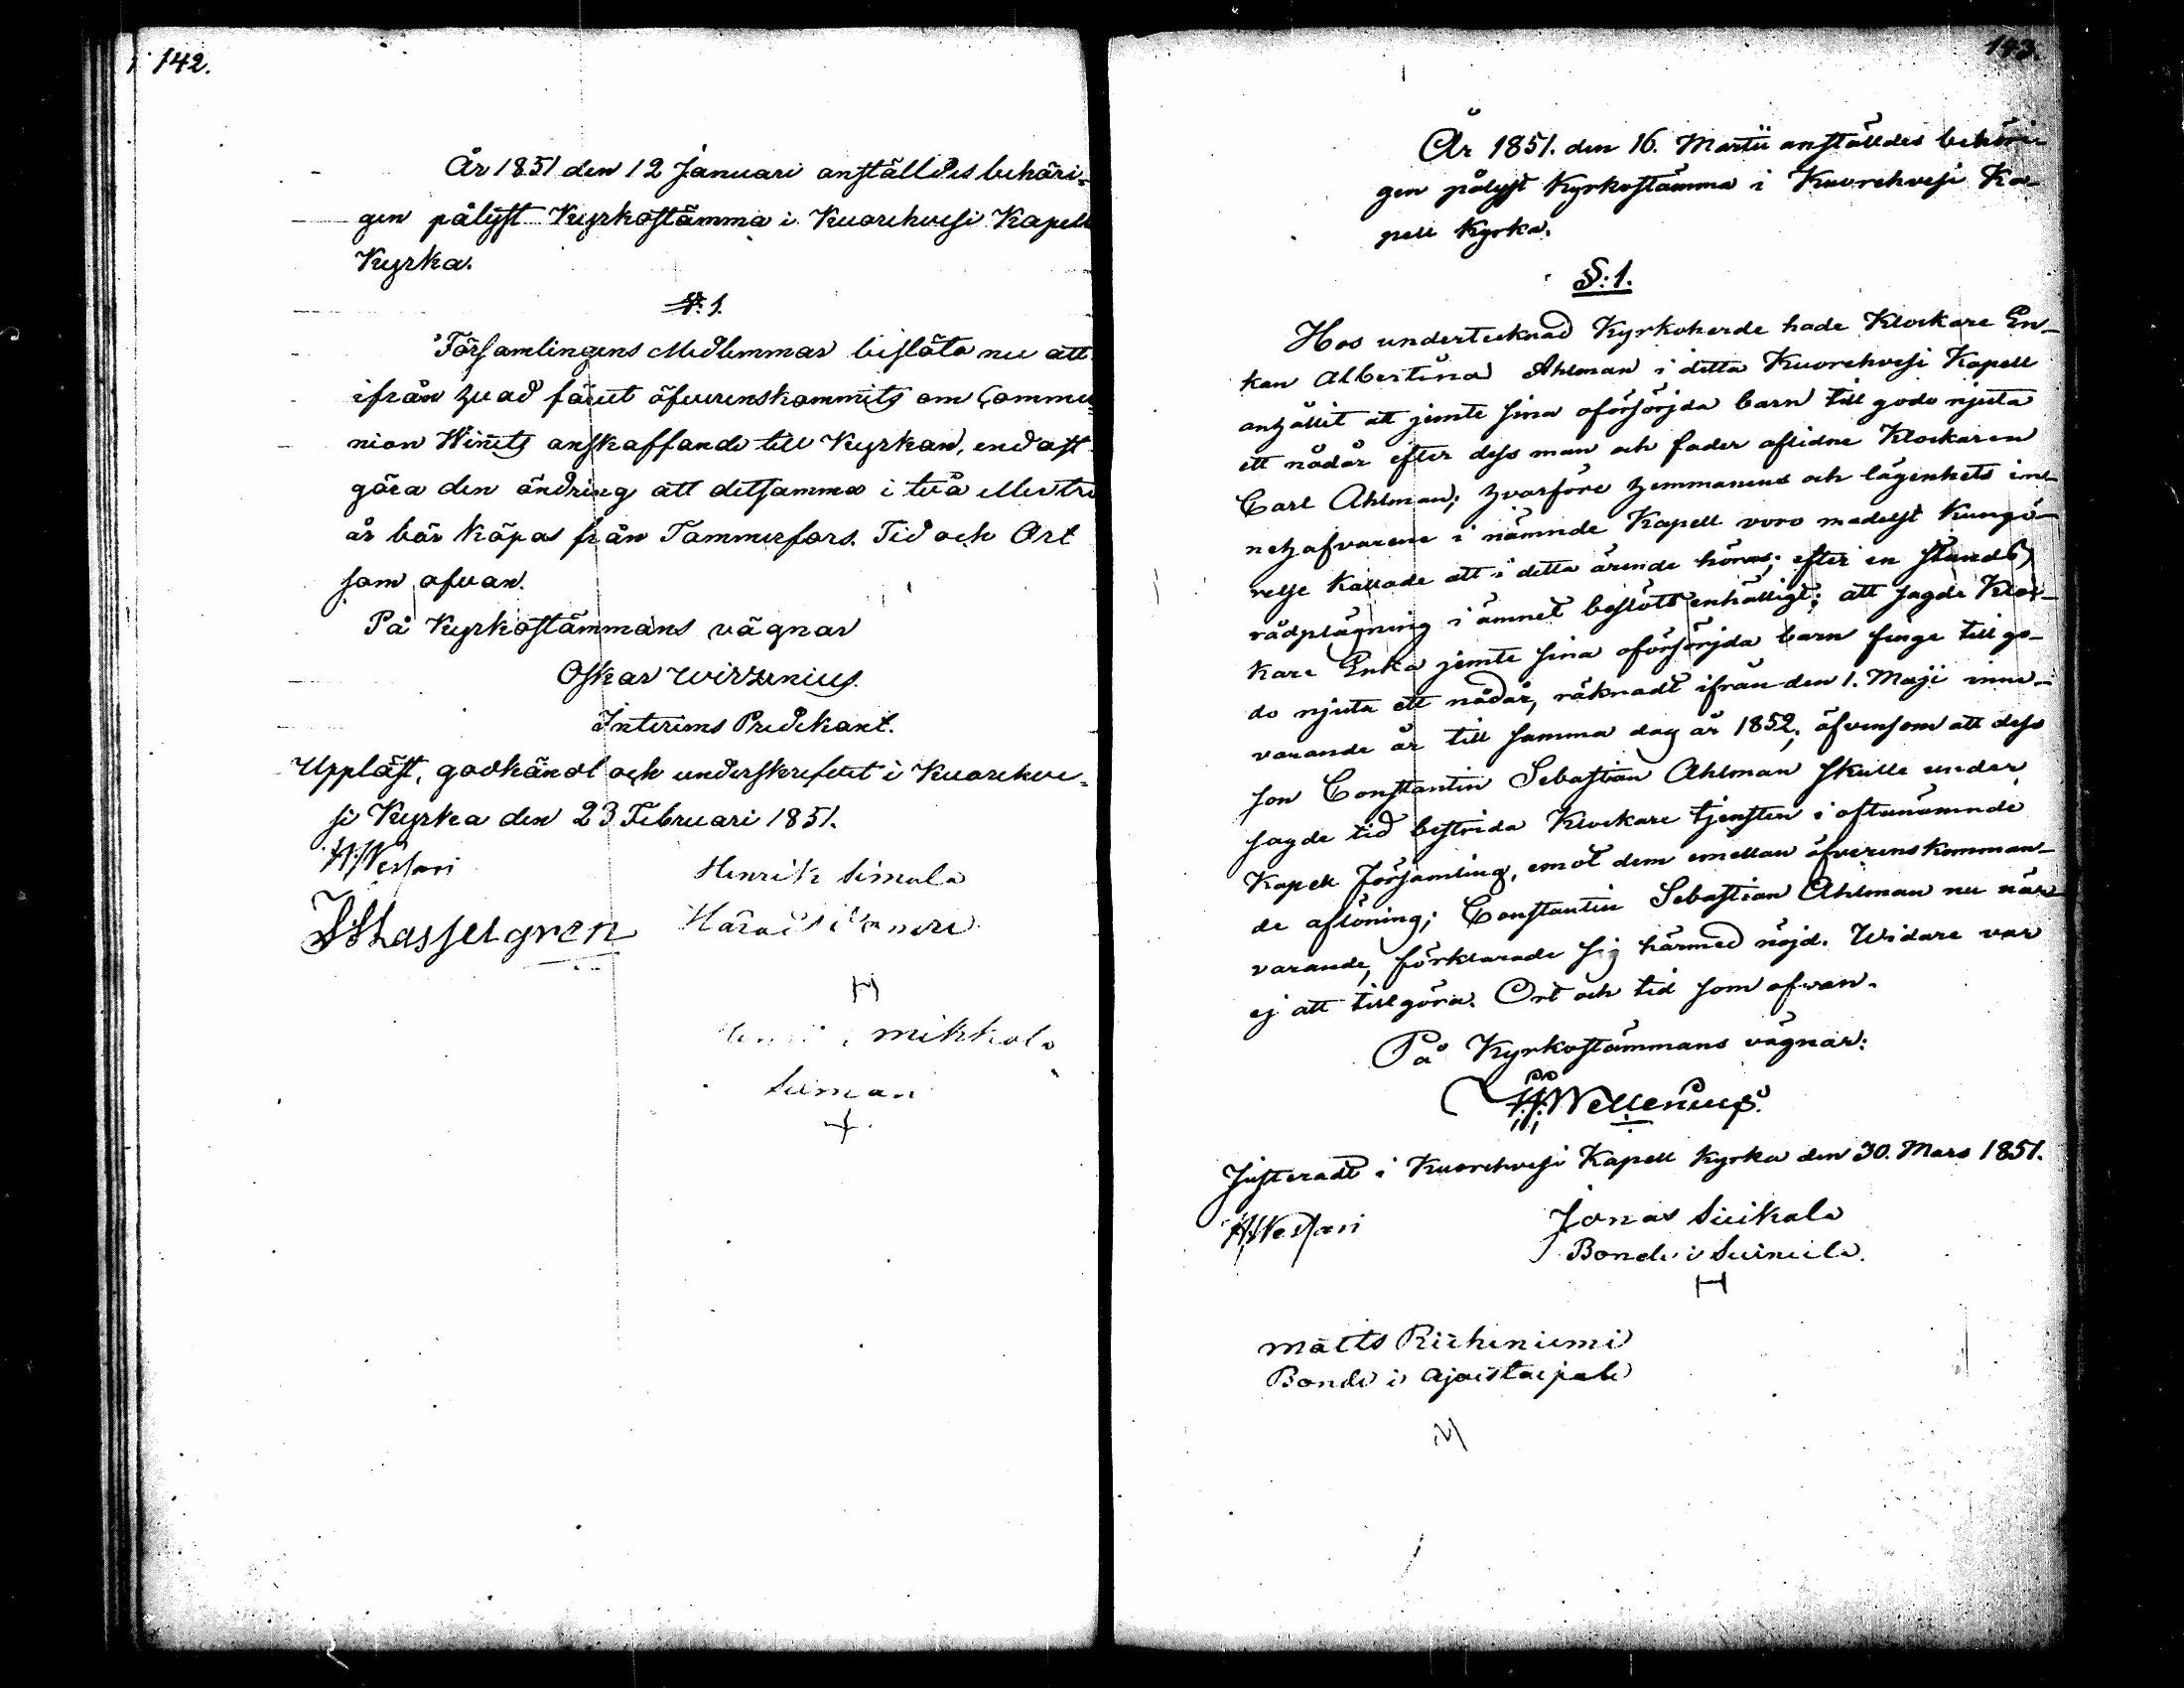 142.
År 1851 den 12 Januari anställdes behöri-
gen pålyst Kyrkostämma i Kuorehvesi Kapell
Kyrka.
§. 1.
Församlingens Medlemmar beslöto nu att
ifrån hvad förut öfverenskommits om Commu-
nion Winets anskaffande till Kyrkan, endast
göra den ändring att detsamma i två eller tre
år bör köpas från Tammerfors. Tid och Ort
som ofvan.
På Kyrkostämmans vägnar
Oskar Wirzenius.
Interims Predikant.
Uppläst, godkändt och underskrifvet i Kuorehve-
si Kyrka den 23 Februari 1851.
Henrik Simula
J Hasselgren
H
Mikkola
+
143.
År 1851. den 16. Martii anställdes behöri-
gen pålyst Kyrkostämma i Kuorehvesi Ka-
pell Kyrka.
§: 1.
Hos undertecknad Kyrkoherde hade Klockare En-
kan Albertina Ahlman i detta Kuorehvesi Kapell
anhållit att jemte sina oförsörjda barn till godo njuta
ett nådår efter dess man och fader aflidne Klockaren
Carl Ahlman; hvarföre hemmanens och lägenhets in-
nehafvarene i nämnde Kapell voro medelst kungö-
relse kallade att i detta ärende höras; efter en stunds
rådplägning i ämnet beslöts enhälligt: att sagde Kloc-
kare Enka jemte sina oförsörjda barn finge till go-
do njuta ett nådår, räknadt ifrån den 1. Maji inne-
varande år till samma dag år 1852; äfvensom att dess
son Constantin Sebastian Ahlman skulle under
sagde tid bestrida Klockare tjensten i oftanämnde
Kapell Församling, emot dem emellan öfverenskomman-
de aflöning; Constantin Sebastian Ahlman nu när-
varande, förklarade sig härmed nöjd. Widare var
ej att tillgöra. Ort och tid som ofvan.
På Kyrkostämmans vägnar:
Wellenius.
Justeradt i Kuorehvesi Kapell Kyrka den 30. Mars 1851.
Jonas Suikala
Bonde i Suinula.
H
Matts Riiheniemi
Bonde i Ajostaipale